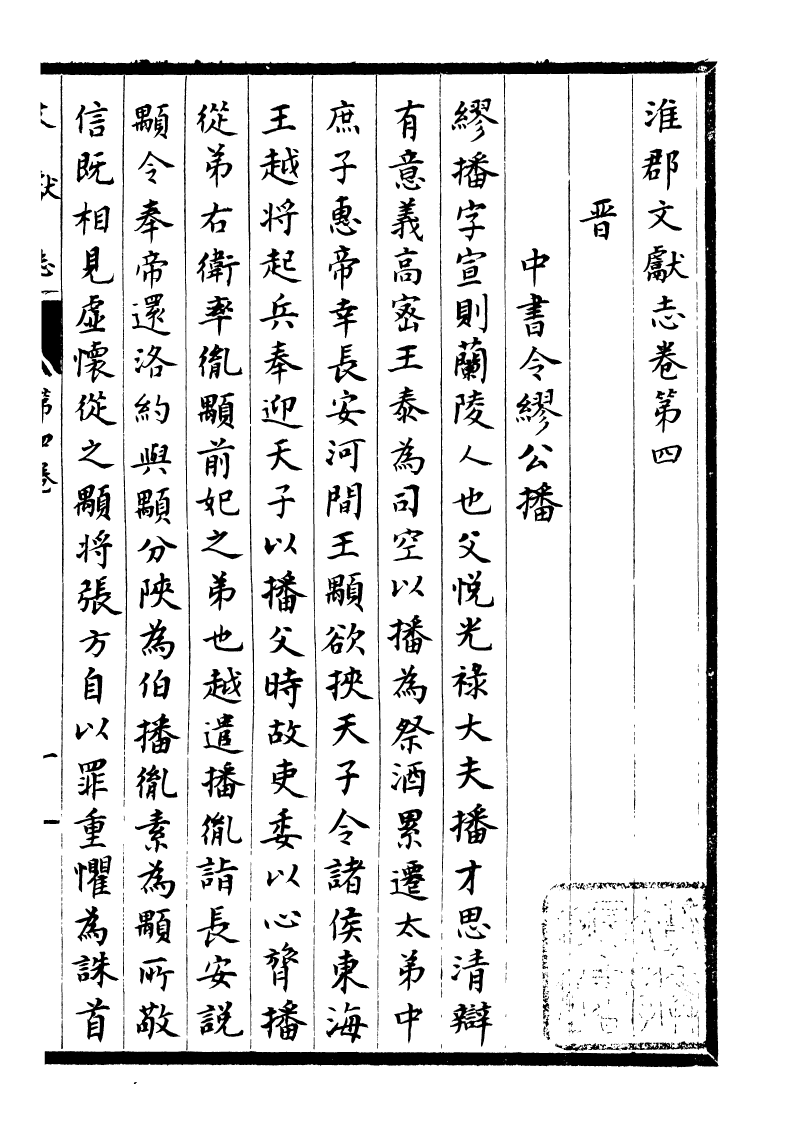 淮郡文獻志卷第四
晋
中書令繆公播
繆播字宣則蘭陵人也父悅光祿大夫播才思清辯
有意義高宻王泰為司空以播為祭酒累遷太弟中
庶子惠帝幸長安河間王顒欲挾天子令諸侯東海
王越将起兵奉迎天子以播父時故吏委以心膂播
從弟右衛率胤顒前妃之弟也越遣播胤詣長安説
顒令奉帝還洛約與顒分陜為伯播胤素為顒所敬
信既相見虛懷從之顒将張方自以罪重懼為誅首
文獻志
第四卷
一